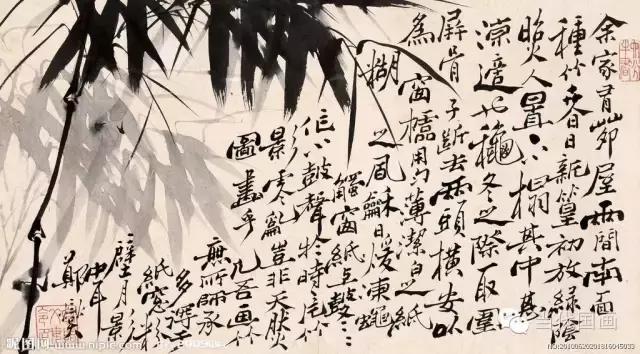 余家有茆屋兩間南面
種竹夏日新篁初放綠陰
照人置一小榻其中甚
涼適也龝冬之際取圍
屏骨子斷去兩頭橫安以
為窗櫺用勻薄潔白之紙
糊之風龢日煖凍蠅
觸窗紙上鼓鼓
作小鼓聲於時一片竹
影零亂豈非天然
圖畫乎凡吾画竹
無所師承
多得
紙窗粉
壁月影
中耳
鄭燮
昵图网 www.nipic.com
国画